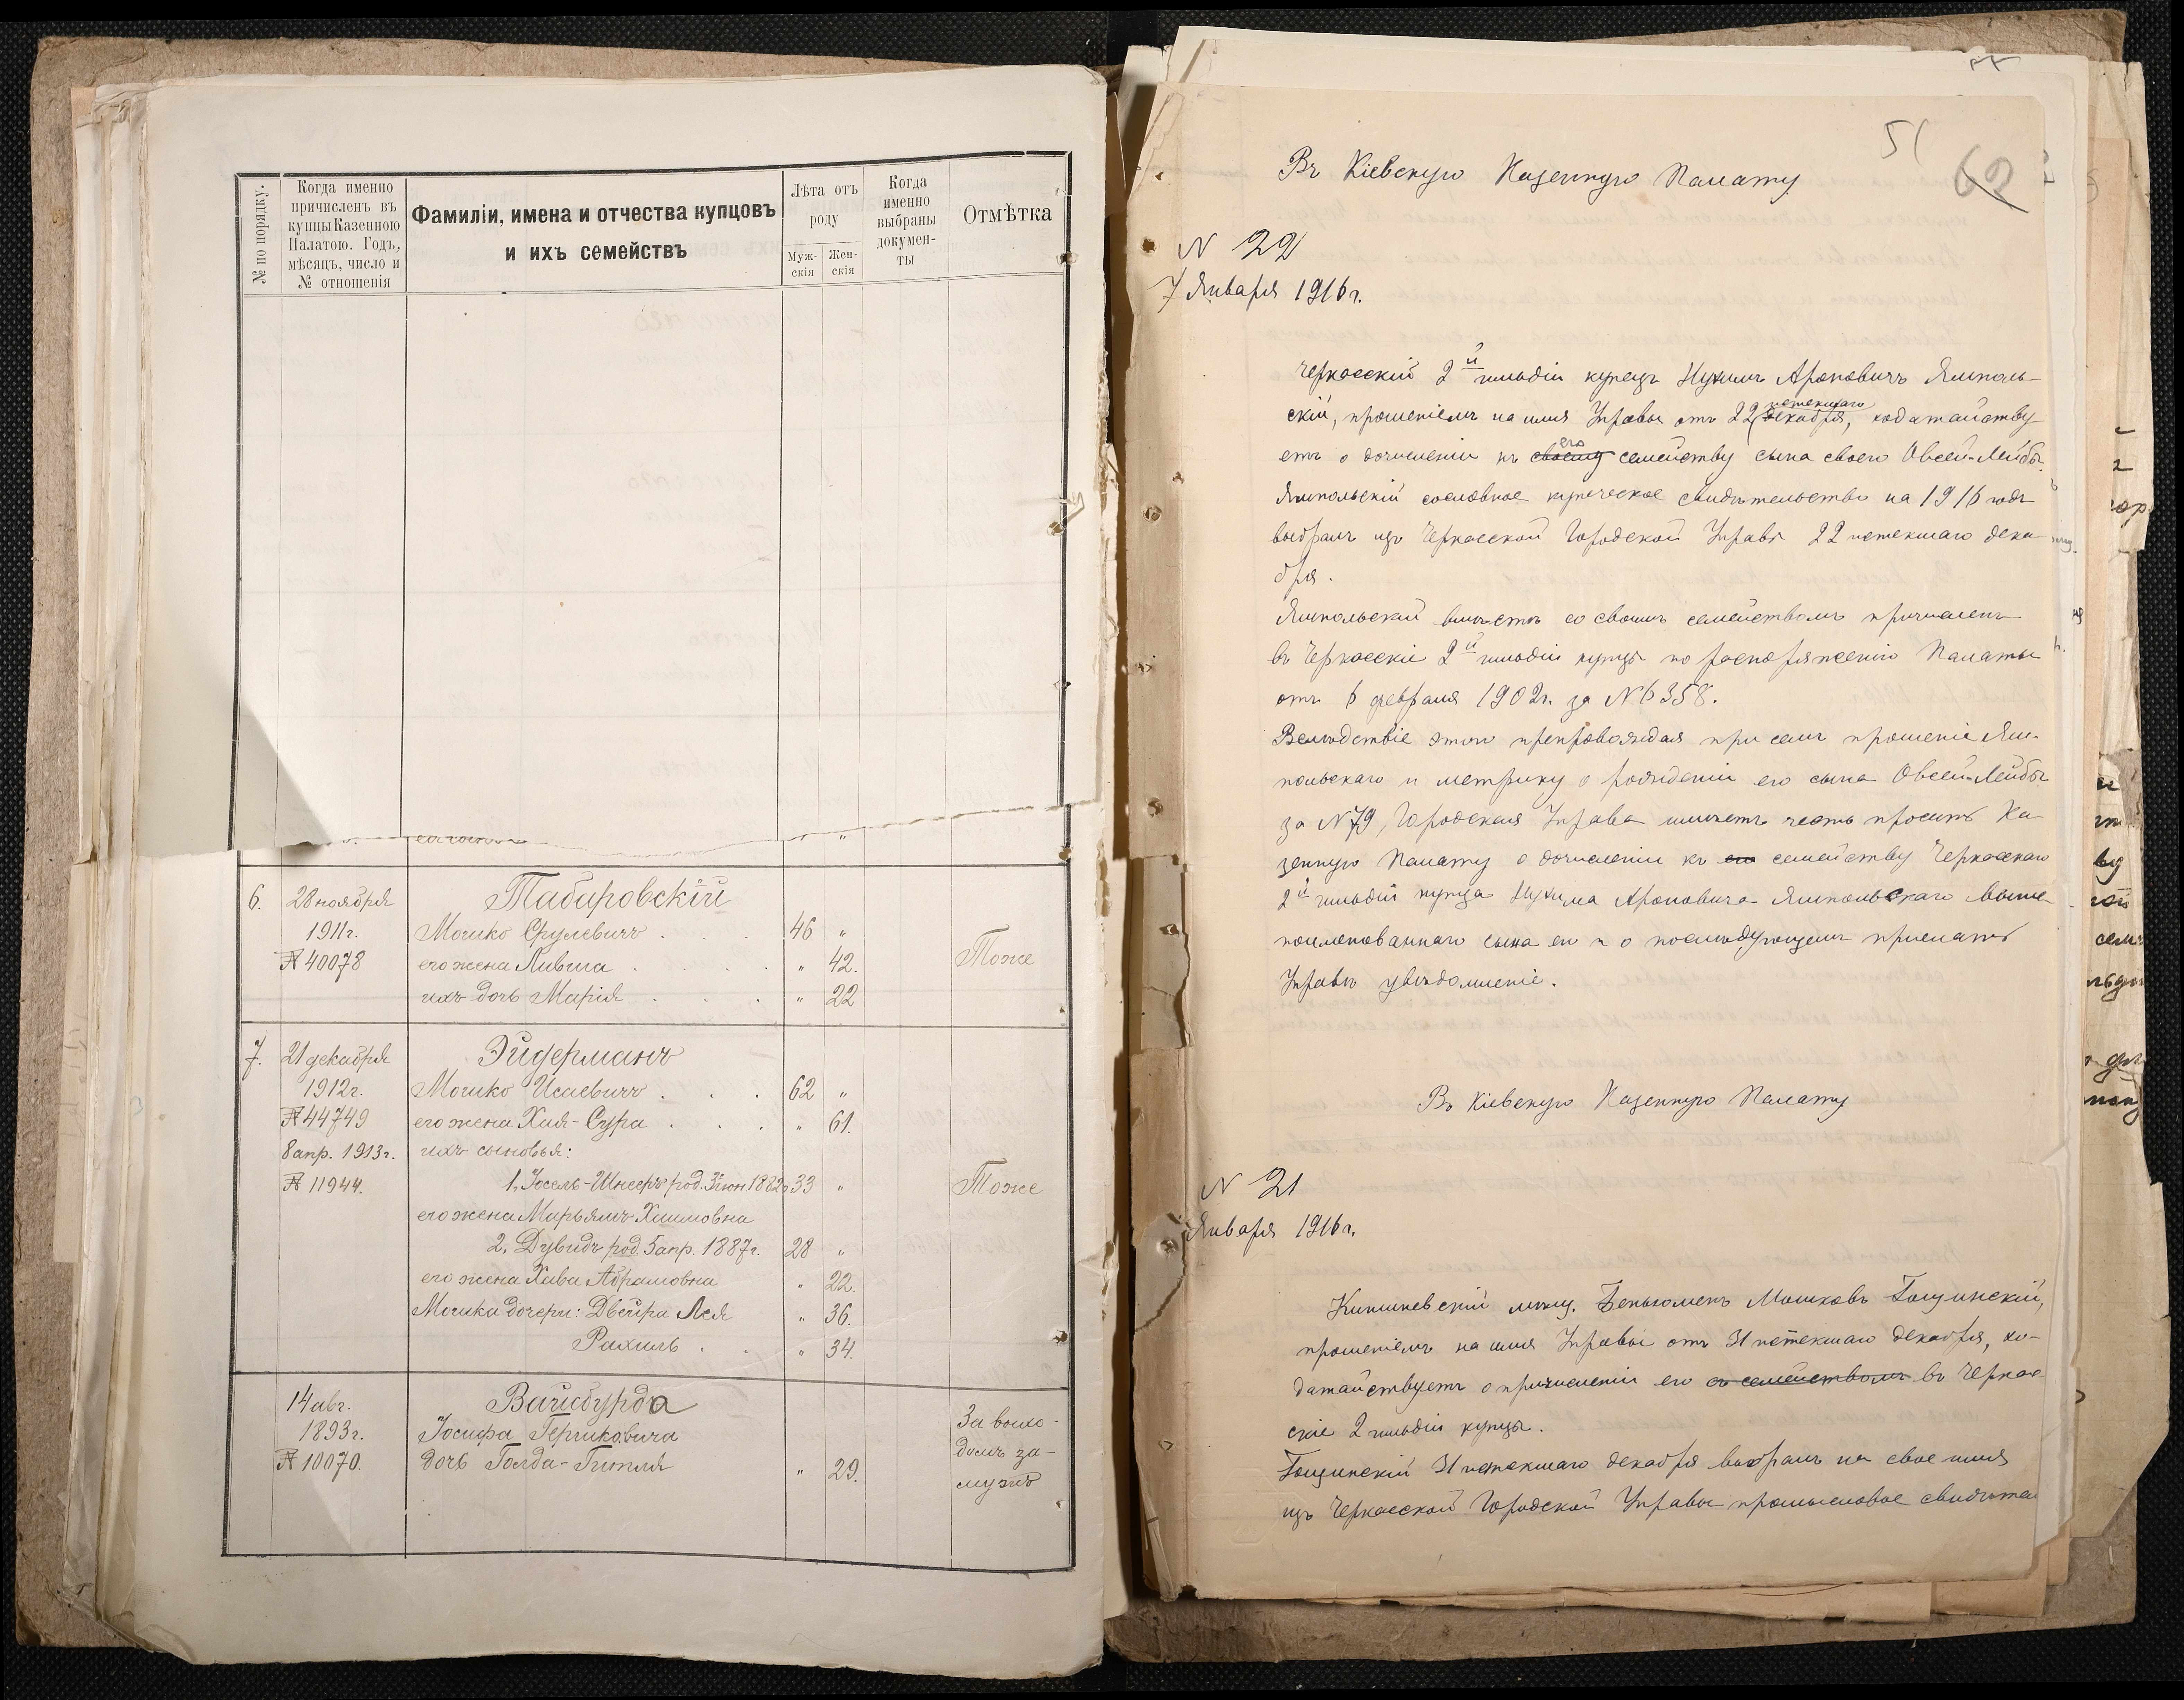 № по порядку.
Когда именно
причисленъ въ
купцы Казенною
Палатою. Годъ,
мѣсяцъ, число и
№ отношенія
Фамиліи, имена и отчества купцовъ
и ихъ семействъ
Лѣта отъ
роду
Муж-
скія
Жен-
скія
Когда
именно
выбраны
докумен-
ты
Отмѣтка
6. 28 ноября Табаровскій
1911г. Мошко Срулевичъ . . . 46 „
№ 40078 его жена Ливша . . . . „ 42. Тоже
ихъ дочь Марія . . . „ 22
7. 21 декабря Эйдерманъ
1912г. Мошко Исаевичъ . . . 62 „
№ 44749 его жена Хая-Сура . . . „ 61.
8 апр. 1913г. ихъ сыновья:
№ 11944. 1, Іосель-Шнееръ род. 3 іюн. 1882 33 „ Тоже
его жена Марьямъ Хаимовна
2, Дувидъ род. 5 апр. 1887г. 28 „
его жена Хава Абрамовна „ 22.
Мошка дочери: Двейра Лея „ 36.
Рахиль . . „ 34.
14 авг. Вайсбурда
1893г. Іосифа Гершковича За выхо-
№ 10070. дочь Голда-Гитля „ 29. домъ за-
мужъ
51
62
Въ Кіевскую Казенную Палату
N 22
7 Января 1916г.
Черкасскій 2й гильдіи купецъ Нухимъ Ароновичъ Ямполь-
скій, прошеніемъ на имя Управы отъ 22 истекшаго декабря, ходатайству
етъ о дочисленіи къ своему его семейству сына своего Овсей-Лейбы.
Ямпольскій сословное купеческое свидѣтельство на 1916 годъ
выбралъ изъ Черкасской Городской Управы 22 истекшаго дека-
бря.
Ямпольскій вмѣстѣ со своимъ семействомъ причисленъ
въ Черкасскіе 2й гильдіи купцы по распоряженію Палаты
отъ 6 февраля 1902г. за N 6358.
Вслѣдствіе этого препровождая при семъ прошеніе Ям-
польскаго и метрику о рожденіи его сына Овсей-Лейбы
за N 79, Городская Управа имѣетъ честь просить Ка-
зенную Палату о дочисленіи къ его семейству Черкасскаго
2й гильдіи купца Нухима Ароновича Ямпольскаго выше-
поименованнаго сына его и о послѣдующемъ прислать
Управѣ увѣдомленіе.
Въ Кіевскую Казенную Палату
N 21
Января 1916г.
Кишиневскій мѣщ. Беньюменъ Мошковъ Гощинскій,
прошеніемъ на имя Управы отъ 31 истекшаго декабря, хо-
датайствуетъ о причисленіи его съ семействомъ въ Черкас-
скіе 2 гильдіи купцы.
Гощинскій 31 истекшаго декабря выбралъ на свое имя
изъ Черкасской Городской Управы промысловое свидѣтел